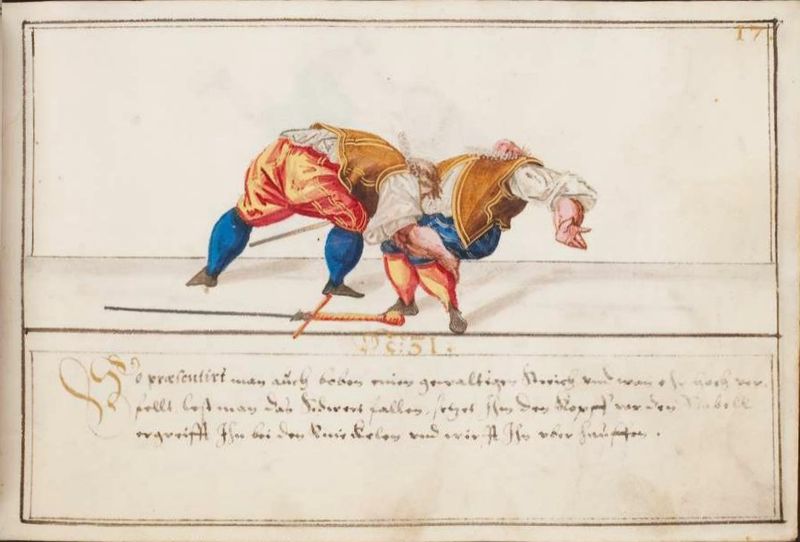 17
No: 31.
So præsentirt man auch oben einen gewaltigen Streich und wan ehr hoch ver-
sellt lest man das Schwert fallen, setzet Ihm den Kopff vor den Nabell
ergreifft Ihn bei den Kniekelen und wirfft Ihn uber hauffen.